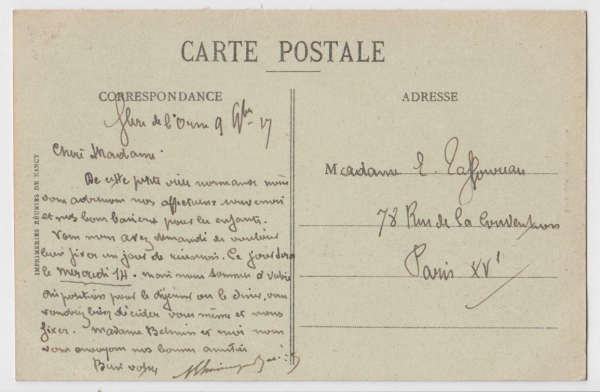 CARTE POSTALE
CORRESPONDANCE
ADRESSE
IMPRIMERIES RÉUNIES DE NANCY
de l'Orne 9 9bre 17
Chère Madame
De cette petite ville normande nous
vous adressons nos affectueux souvenirs
et nos bons baisers pour les enfants.
Vous nous avez demandé de vouloir
bien fixer un jour de réunion. Ce jour sera
le Mercredi 14. mais nous sommes à votre
disposition pour le déjeuner ou le dîner, vous
voudrez bien décider vous même et nous
fixer. Madame et moi nous
vous envoyons nos bonnes amitiés
Bien votre
Madame E.
78 Rue de la Convention
Paris XV